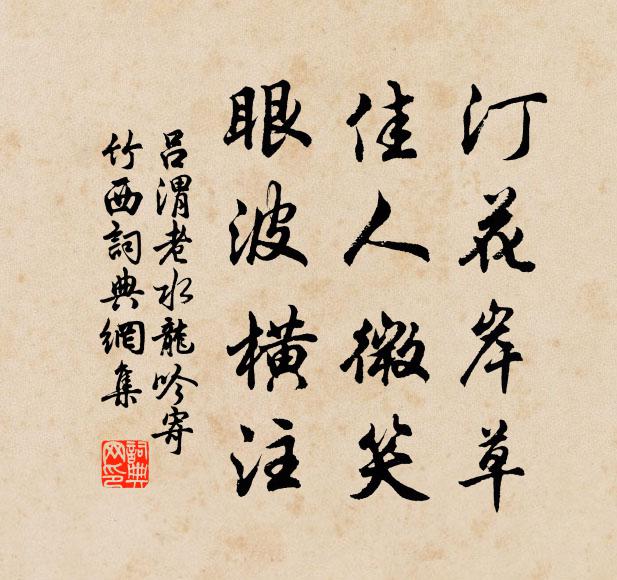 汀花岸草
佳人微笑
眼波橫注
呂渭老水龍吟寄
竹西詞典網集
詞典
网印